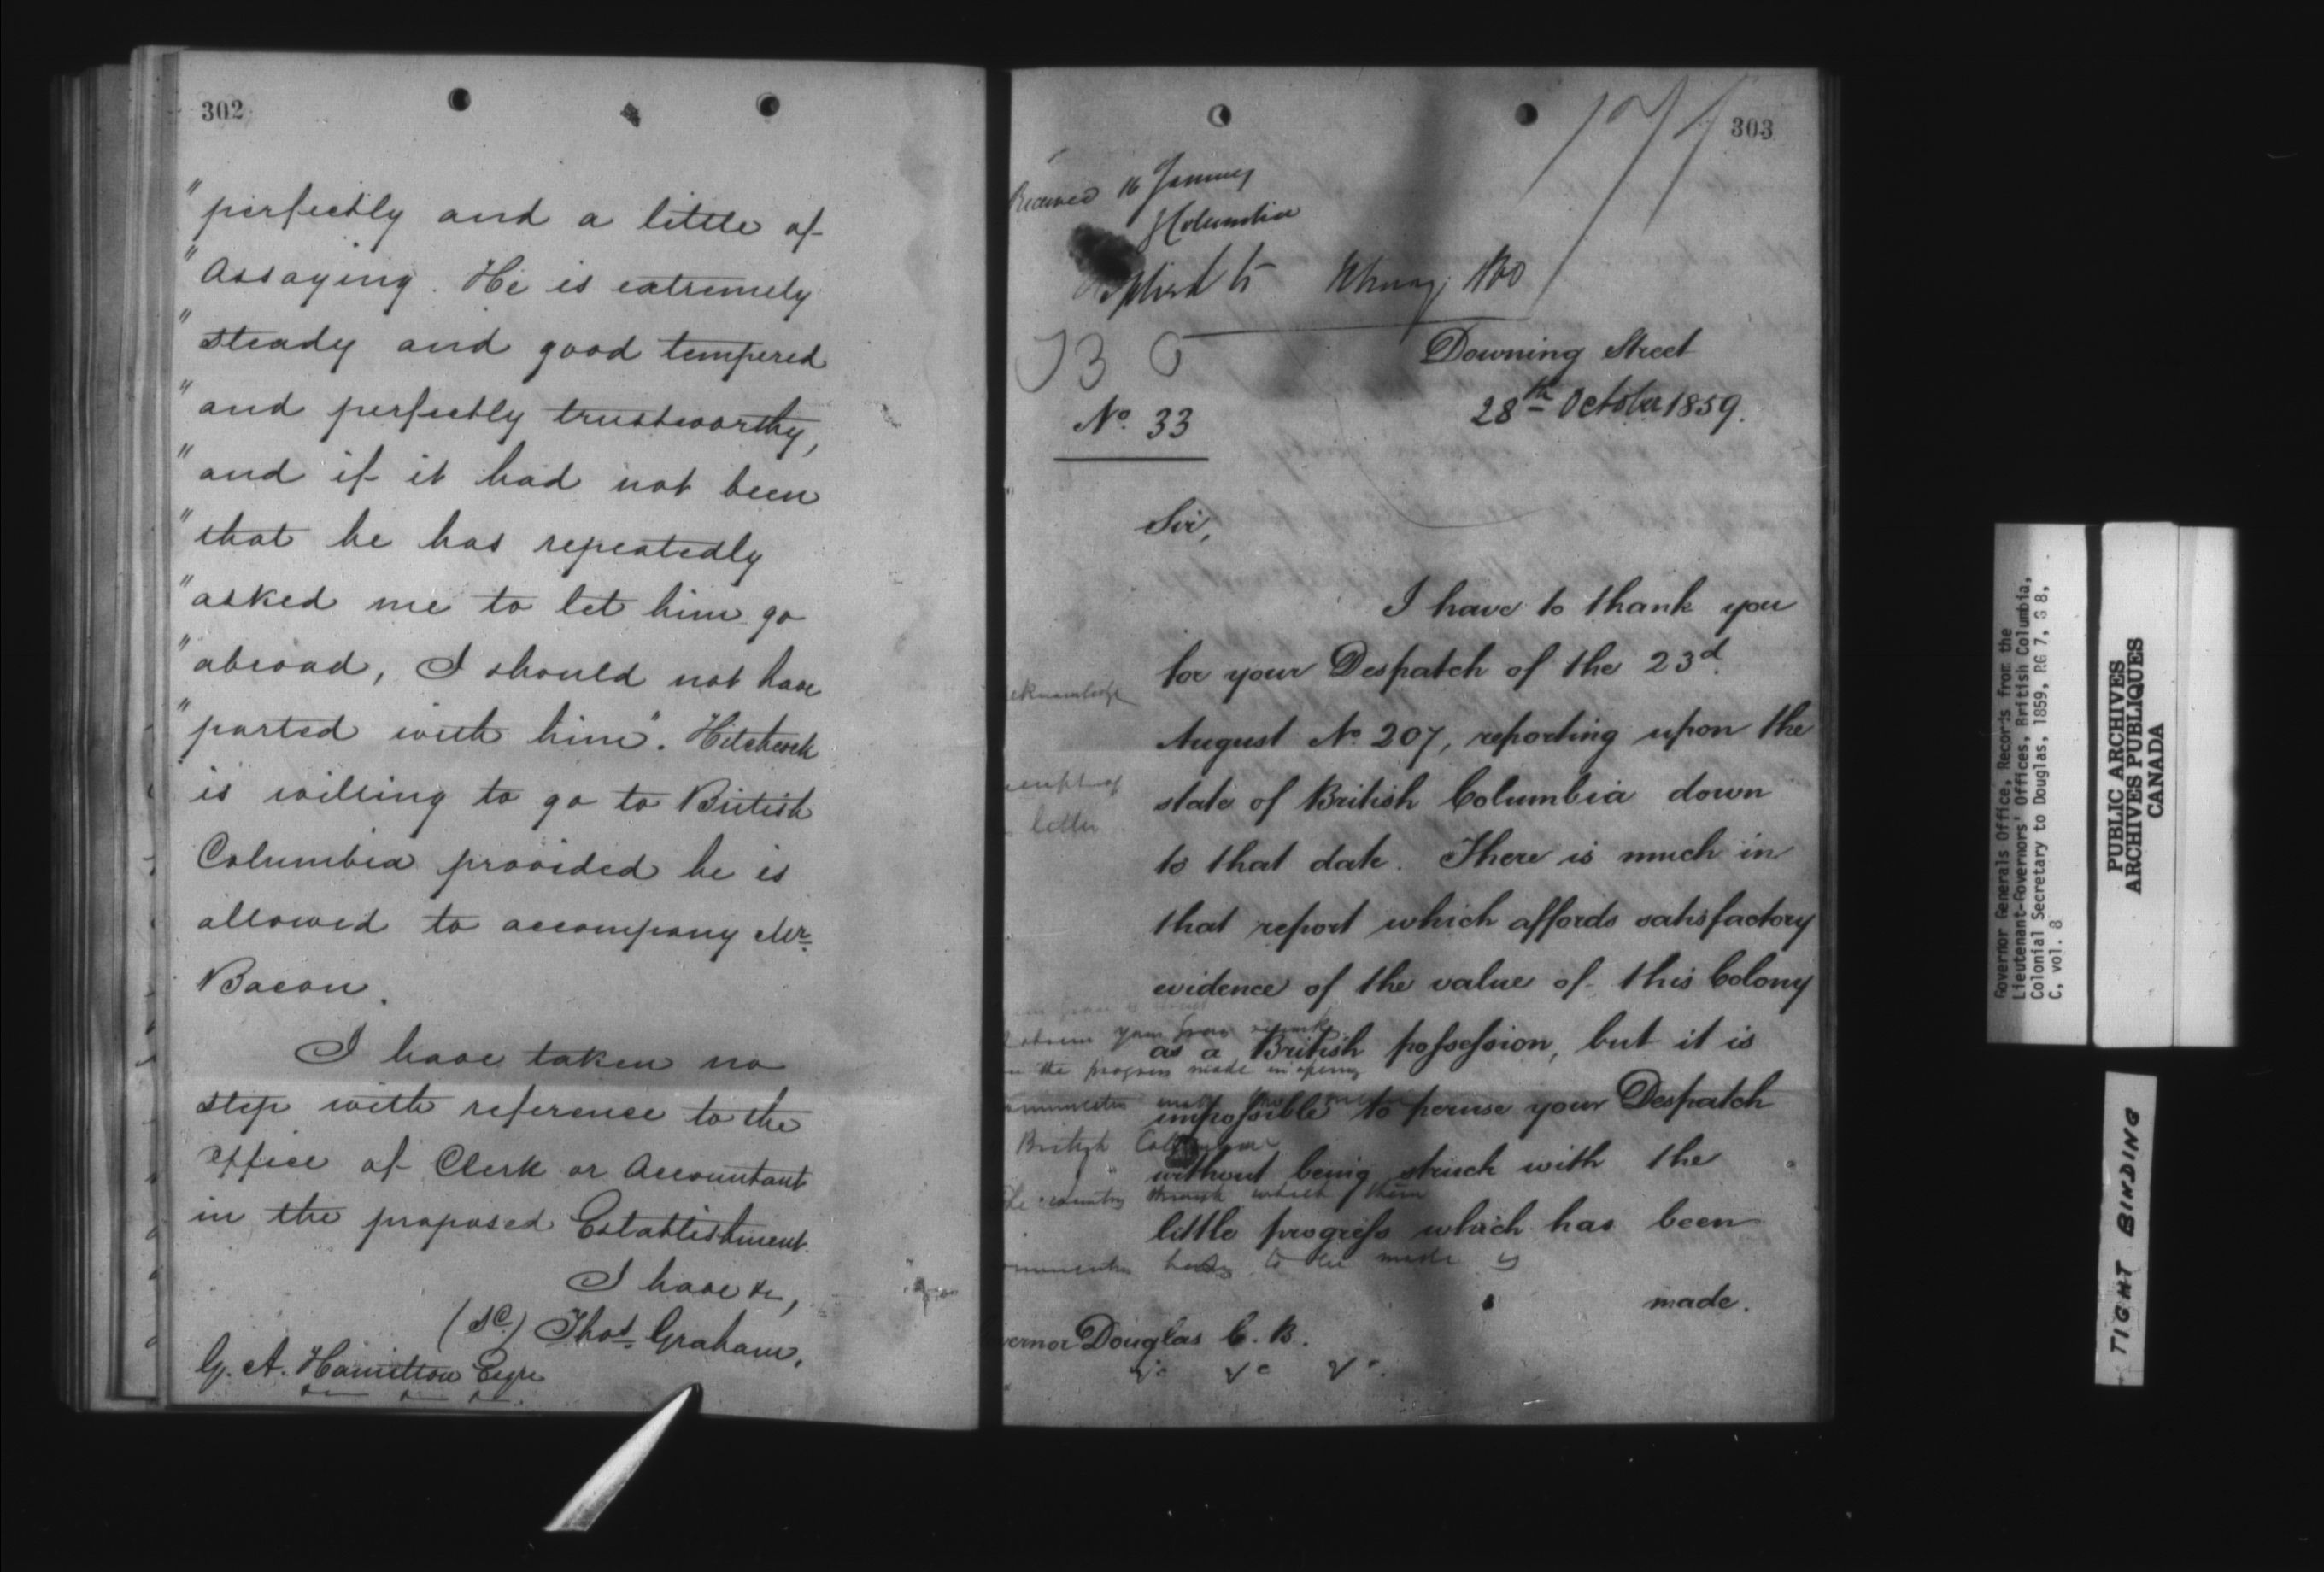 302
"perfectly and a little of
"Assaying. He is extremely
"steady and good tempered
"and perfectly trustworthy,
"and if it had not been
"that he has repeatedly
"asked me to let him go
"abroad, I should not have
"parted with him". Hitchcock
is willing to go to British
Columbia provided he is
allowed to accompany Mr.
Bacon.
I have taken no
step with reference to the
Office of Clerk or Accountant
in the proposed Establishment.
I have &c,
(Sd) Thos. Graham.
G. A. Hamilton Esqre
303
Received 16 January
Columbia
Downing Street
28th October 1859.
No. 33
Sir,
I have to thank you
for your Despatch of the 23d.
August No. 207, reporting upon the
state of British Columbia down
to that date. There is much in
that report which affords satisfactory
evidence of the value of this Colony
as a British possession, but it is
impossible to peruse your Despatch
without being struck with the
little progress which has been
made.
Douglas C. B.
&c &c &c.
letter
the progress made in opening
British
country through which
to be made
Governor Generals Office, Records from the
Lieutenant-Governors' Offices, British Columbia,
Colonial Secretary to Douglas, 1859, RG 7, G 8,
C, vol. 8
PUBLIC ARCHIVES
ARCHIVES PUBLIQUES
CANADA
TIGHT BINDING